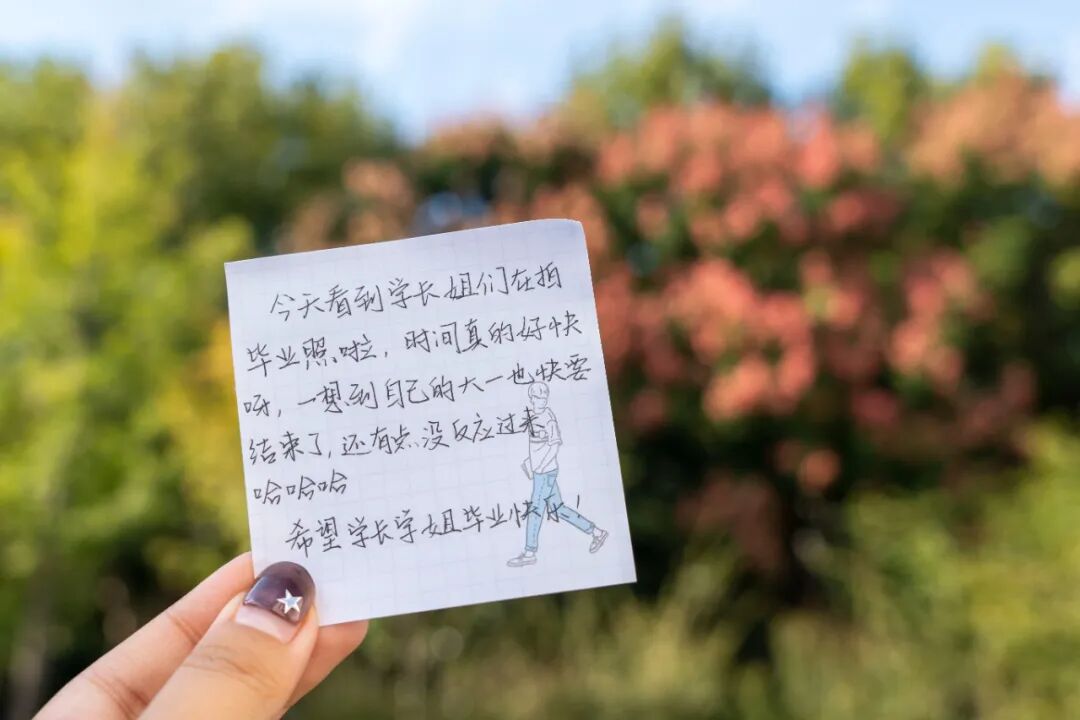 今天看到学长姐们在拍
毕业照啦，时间真的好快
呀，一想到自己的大一也快要
结束了，还有点没反应过来
哈哈哈
希望学长学姐毕业快乐！